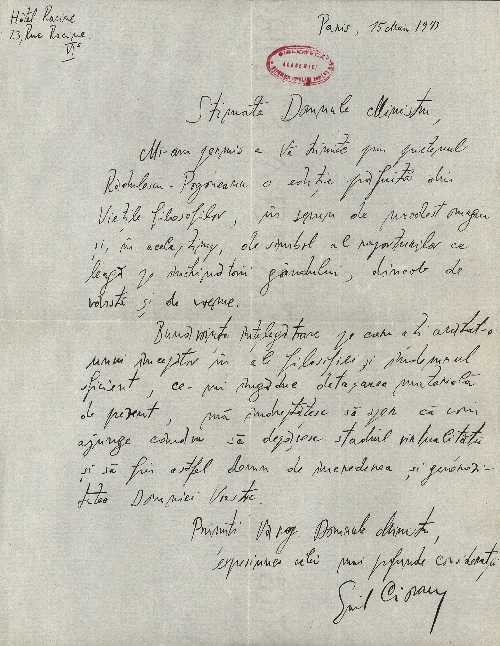 Hôtel Racine
23, Rue Racine
VIe
Paris, 15 Mars 1943
BIBLIOTECA
ACADEMIEI
Stimate Domnule Ministru,
Mi-am permis a Vă trimite prin prietenul
Rădulescu-Pogoneanu o ediție din
Viețile filosofilor, în semn de modest omagiu
și, în același timp, de simbol al raporturilor ce
leagă pe închinătorii gândului, dincolo de
vârstă și de vreme.
Bunăvoința înțelegătoare pe care ați arătat-o
unui începător în ale filosofiei și îndemnul
eficient, ce-mi îngădue detașarea materială
de prezent, mă îndreptățesc să sper că voi
ajunge cândva să depășesc stadiul virtualității
și să fiu astfel demn de încrederea și generozi-
tatea Domniei Voastre.
Primiți Vă rog, Domnule Ministru,
expresiunea celei mai profunde considerații
Emil Cioran